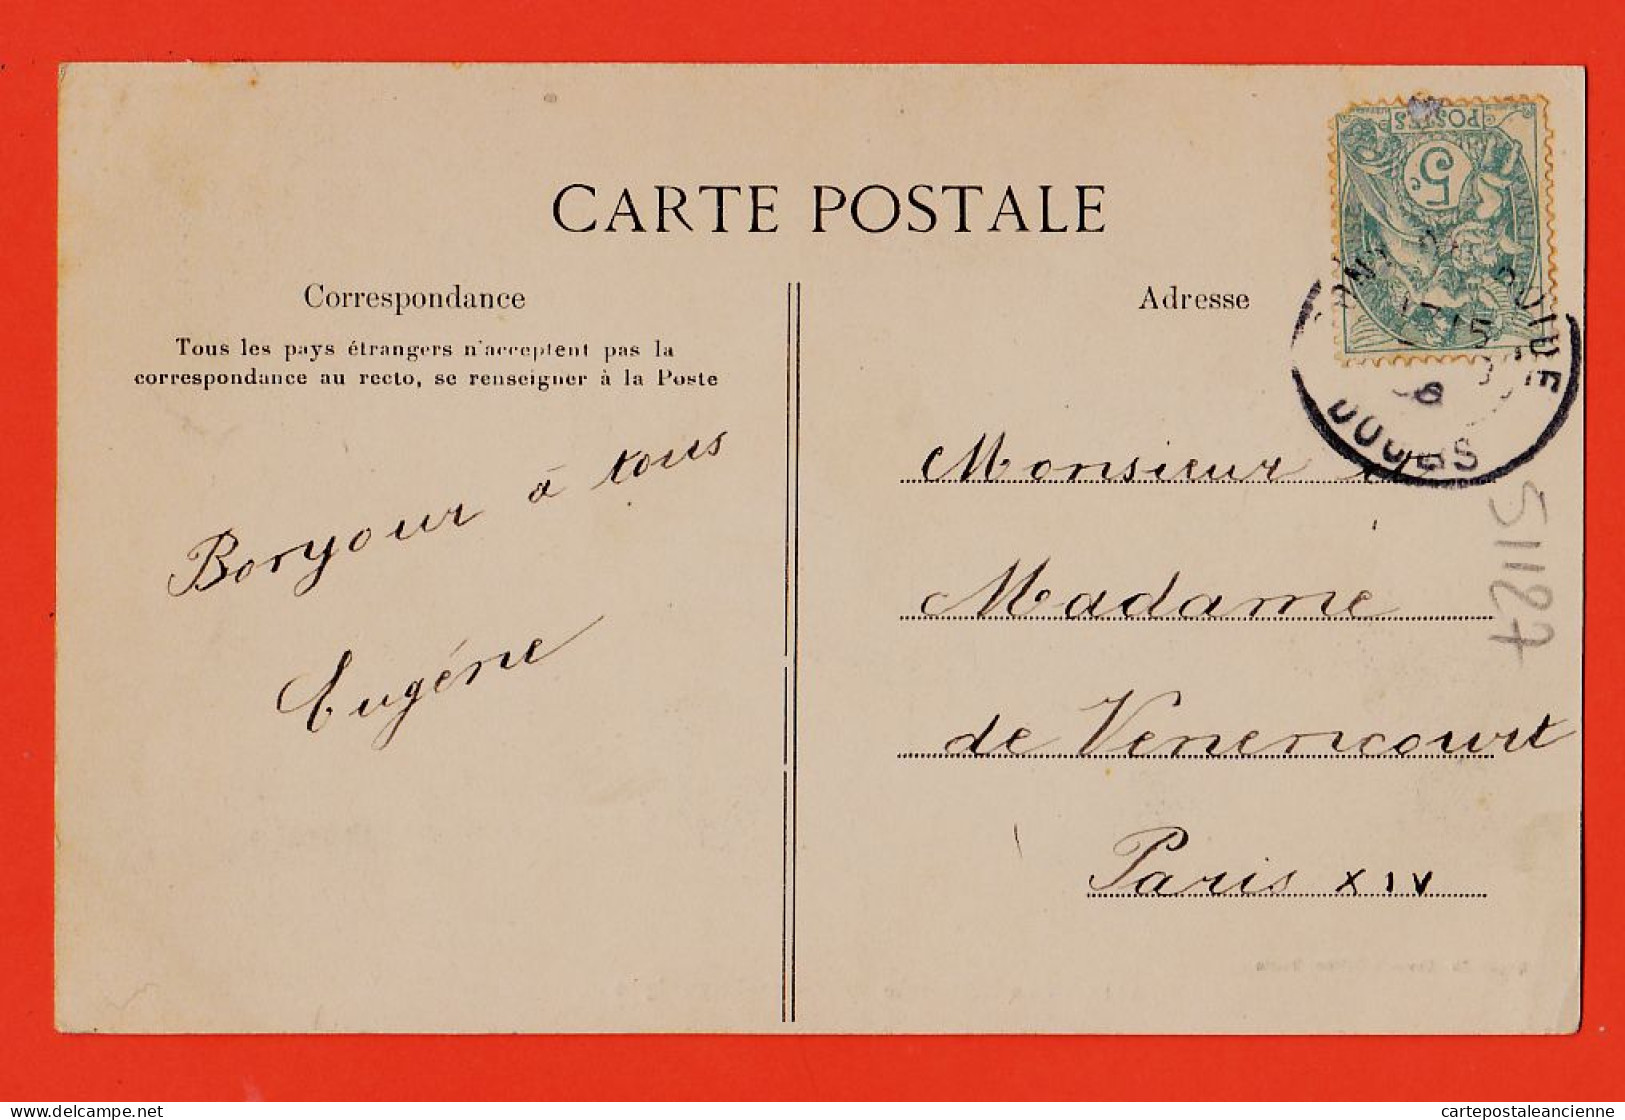 CARTE POSTALE
Correspondance
Tous les pays étrangers n'acceptent pas la
correspondance au recto, se renseigner à la Poste
Bonjour à tous
Eugéne
Adresse
Monsieur et
Madame
de Venencourt
Paris XIV
POSTES
5c
DOUBS
51187
cartepostaleancienne